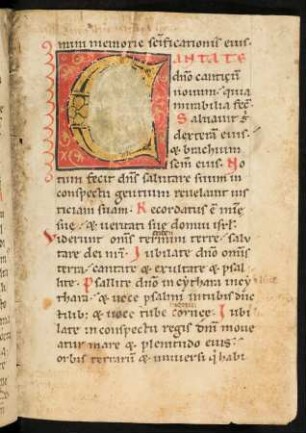 mini memorie scificationis eius.
CANTATE
dño canticũ
nouum. quia
mirabilia fec̃.
Saluauit ᵹ
dextera eius.
& brachium
scm̃ eius. No
tum fecit dñs salutare suum in
conspectu gentium reuelauit ius
ticiam suam. Recordatus ẽ mis̃e
sue. & ueritati sue domui isrł.
Viderunt om̃s termini terre. salu
tare dei nr̃i. Iubilate dño omnis
terra. cantate & exultate & psal
lite. Psallite dño in cythara in cy
thara. & uoce psalmi in tubis duc
tilib; & uoce tube cornee. Iubi
late in conspectu regis dñi moue
atur mare & plenitudo eius.
orbis terrarũ & uniuersi q̃ habi